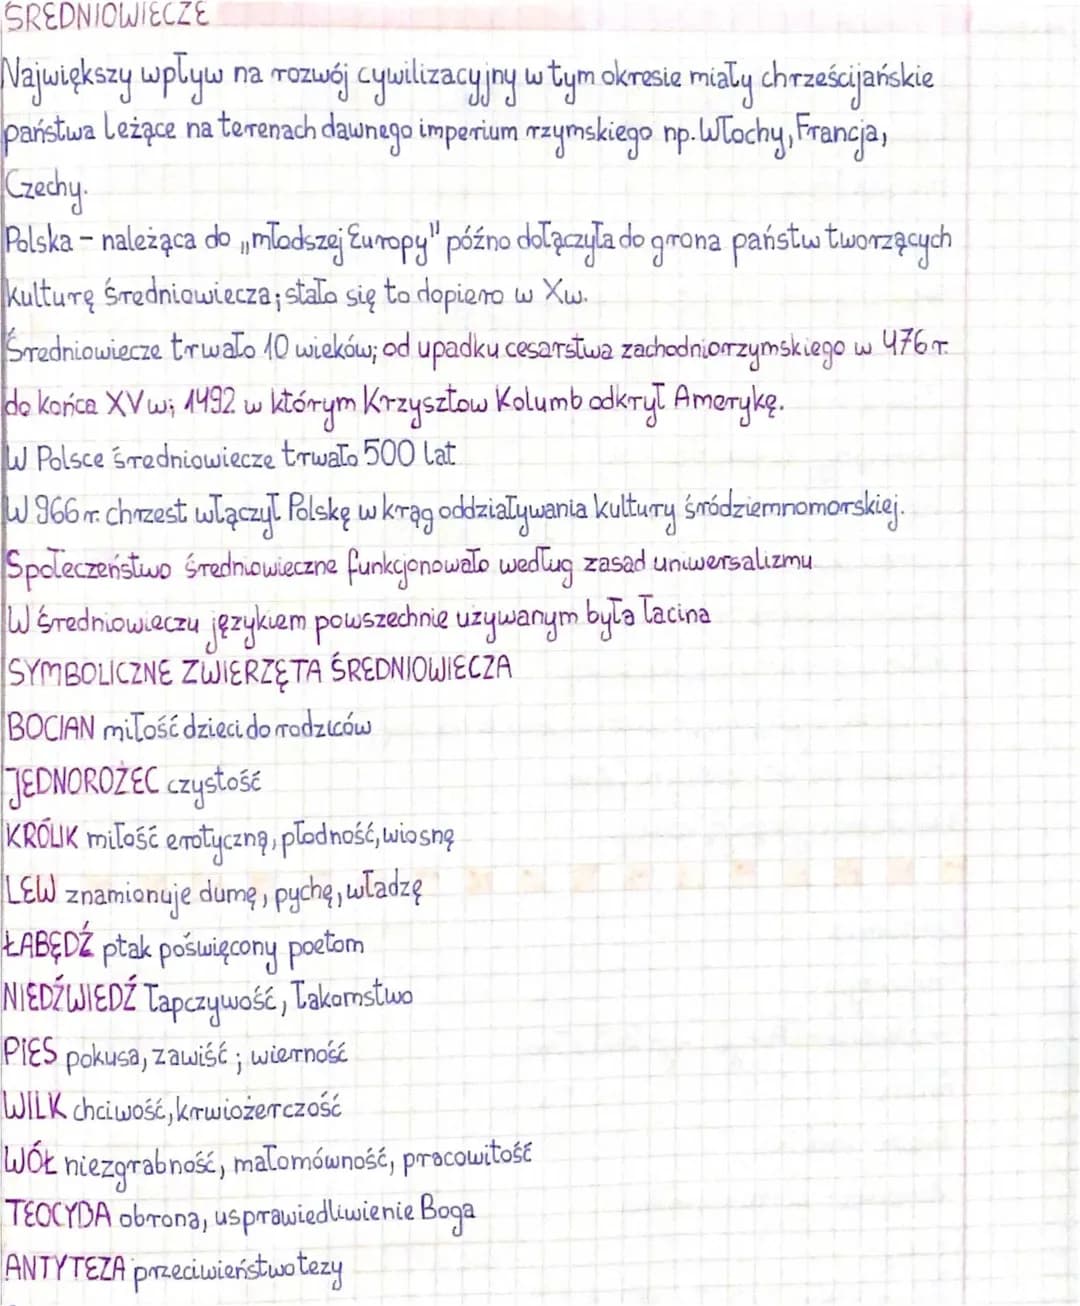 ŚREDNIOWIECZE
Największy wpływ na rozwój cywilizacyjny w tym okresie miały chrześcijańskie
państwa leżące na terenach dawnego imperium rzymskiego np. Włochy, Francja,
Czechy.
Polska - należąca do „młodszej Europy" późno dołączyła do grona państw tworzących
kulturę średniowiecza; stało się to dopiero w Xw.
Średniowiecze trwało 10 wieków; od upadku cesarstwa zachodniorzymskiego w 476 r.
do końca XV w; 1492 w którym Krzysztow Kolumb odkrył Amerykę.
W Polsce średniowiecze trwało 500 lat
W 966 r. chrzest włączył Polskę w krąg oddziaływania kultury śródziemnomorskiej.
Społeczeństwo średniowieczne funkcjonowało według zasad uniwersalizmu
W średniowieczu językiem powszechnie używanym była łacina
SYMBOLICZNE ZWIERZĘTA ŚREDNIOWIECZA
BOCIAN miłość dzieci do rodziców
JEDNOROŻEC czystość
KRÓLIK miłość erotyczną, płodność, wiosnę
LEW znamionuje dumę, pychę, władzę
ŁABĘDŹ ptak poświęcony poetom
NIEDŹWIEDŹ łapczywość, łakomstwo
PIES pokusa, zawiść ; wierność
WILK chciwość, krwiożerczość
WÓŁ niezgrabność, małomówność, pracowitość
TEOCYDA obrona, usprawiedliwienie Boga
ANTYTEZA przeciwieństwo tezy